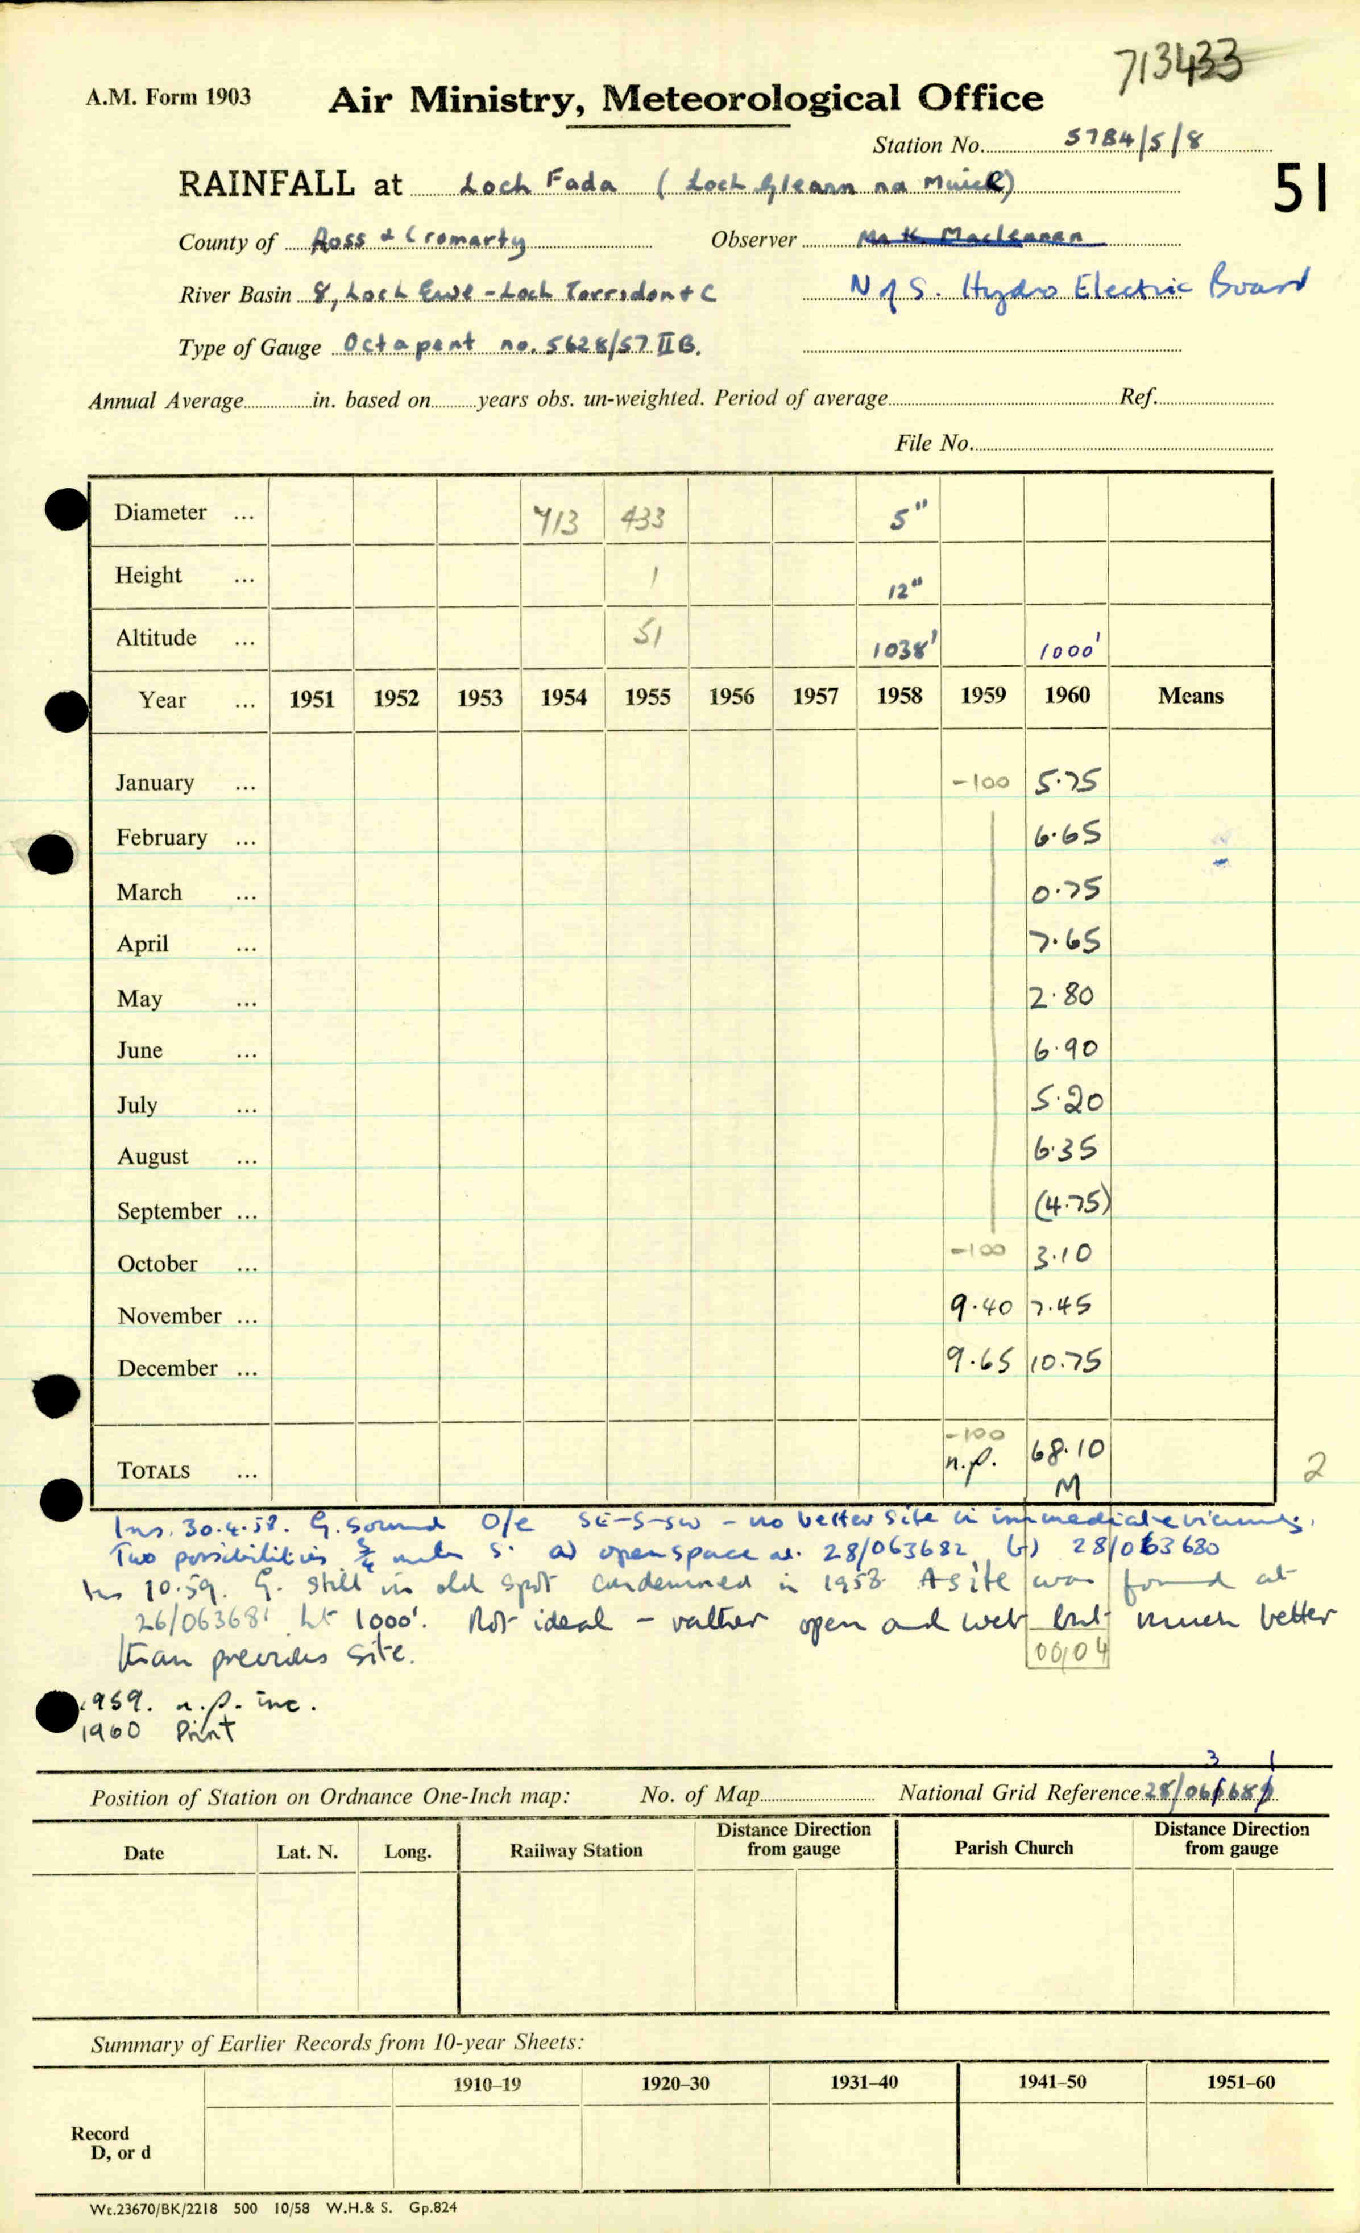 713433
A.M. Form 1903 Air Ministry, Meteorological Office
Station No. 5784/5/8
RAINFALL at Loch Fada (Loch Glearn na Muice) 51
County of Ross + Cromarty Observer Mr K. Maclennan
River Basin 8, Loch Ewe - Loch Torridon + C N of S. Hydro Electric Board
Type of Gauge Octapent no. 5628/57 II B.
Annual Average in. based on years obs. un-weighted. Period of average Ref.
File No.
Diameter ... 713 433 5"
Height ... 1 12"
Altitude ... 51 1038' 1000'
Year ... 1951 1952 1953 1954 1955 1956 1957 1958 1959 1960 Means
January ... -100 5.75
February ... 6.65
March ... 0.75
April ... 7.65
May ... 2.80
June ... 6.90
July ... 5.20
August ... 6.35
September ... (4.75)
October ... -100 3.10
November ... 9.40 7.45
December ... 9.65 10.75
-100
TOTALS ... n.p. 68.10 2
M
Ins. 30.4.58. G. sound O/e SE-S-SW - no better site in immediate vicinity.
Two possibilities 3/4 mile S. a) open space at 28/063682 (b) 28/063680
Ins 10.59. G. still in old spot condemned in 1958 A site was found at
26/063681 ht 1000'. Not ideal - rather open and wet but much better
than previous site. 00/04
1959. n.p. inc.
1960 Print
3 1
Position of Station on Ordnance One-Inch map: No. of Map National Grid Reference 28/06 68
Date Lat. N. Long. Railway Station Distance Direction from gauge Parish Church Distance Direction from gauge
Summary of Earlier Records from 10-year Sheets:
1910–19 1920–30 1931–40 1941–50 1951–60
Record
D, or d
Wt.23670/BK/2218 500 10/58 W.H.& S. Gp.824